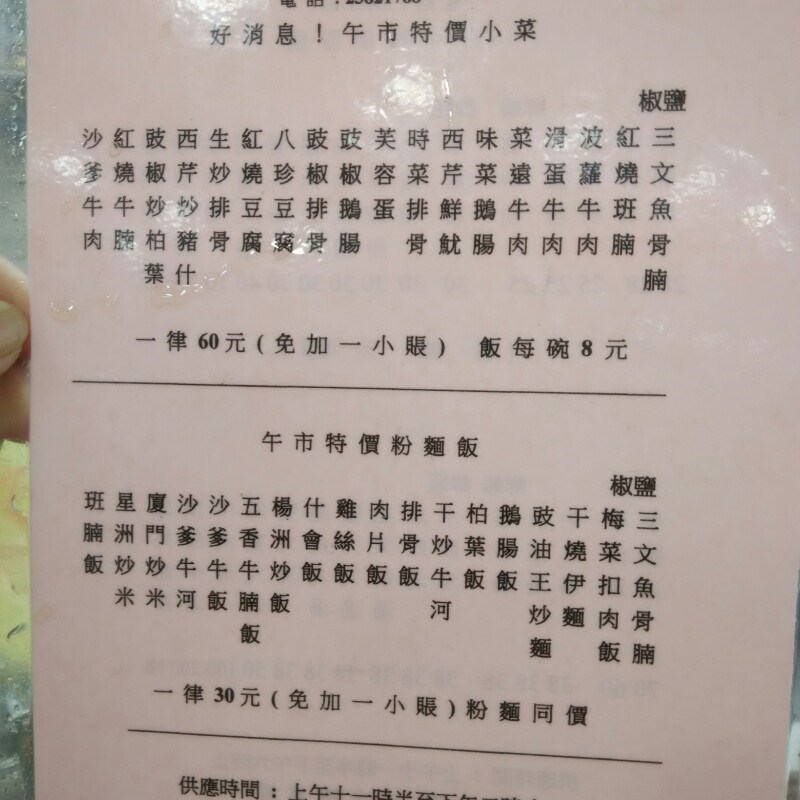 好消息!午市特價小菜
椒鹽三文魚骨腩
紅燒班腩
波蘿牛肉
滑蛋牛肉
菜遠牛肉
味菜鵝腸
西芹鮮魷
時菜排骨
芙容蛋
豉椒鵝腸
豉椒排骨
八珍豆腐
紅燒豆腐
生炒排骨
西芹炒豬什
豉椒炒柏葉
紅燒牛腩
沙爹牛肉
一律60元(免加一小賬) 飯每碗8元
午市特價粉麵飯
椒鹽三文魚骨腩
梅菜扣肉飯
干燒伊麵
豉油王炒麵
鵝腸飯
柏葉飯
干炒牛河
排骨飯
肉片飯
雞絲飯
什會飯
楊洲炒飯
五香牛腩飯
沙爹牛飯
沙爹牛河
廈門炒米
星洲炒米
班腩飯
一律30元(免加一小賬)粉麵同價
供應時間:上午十一時半至下午